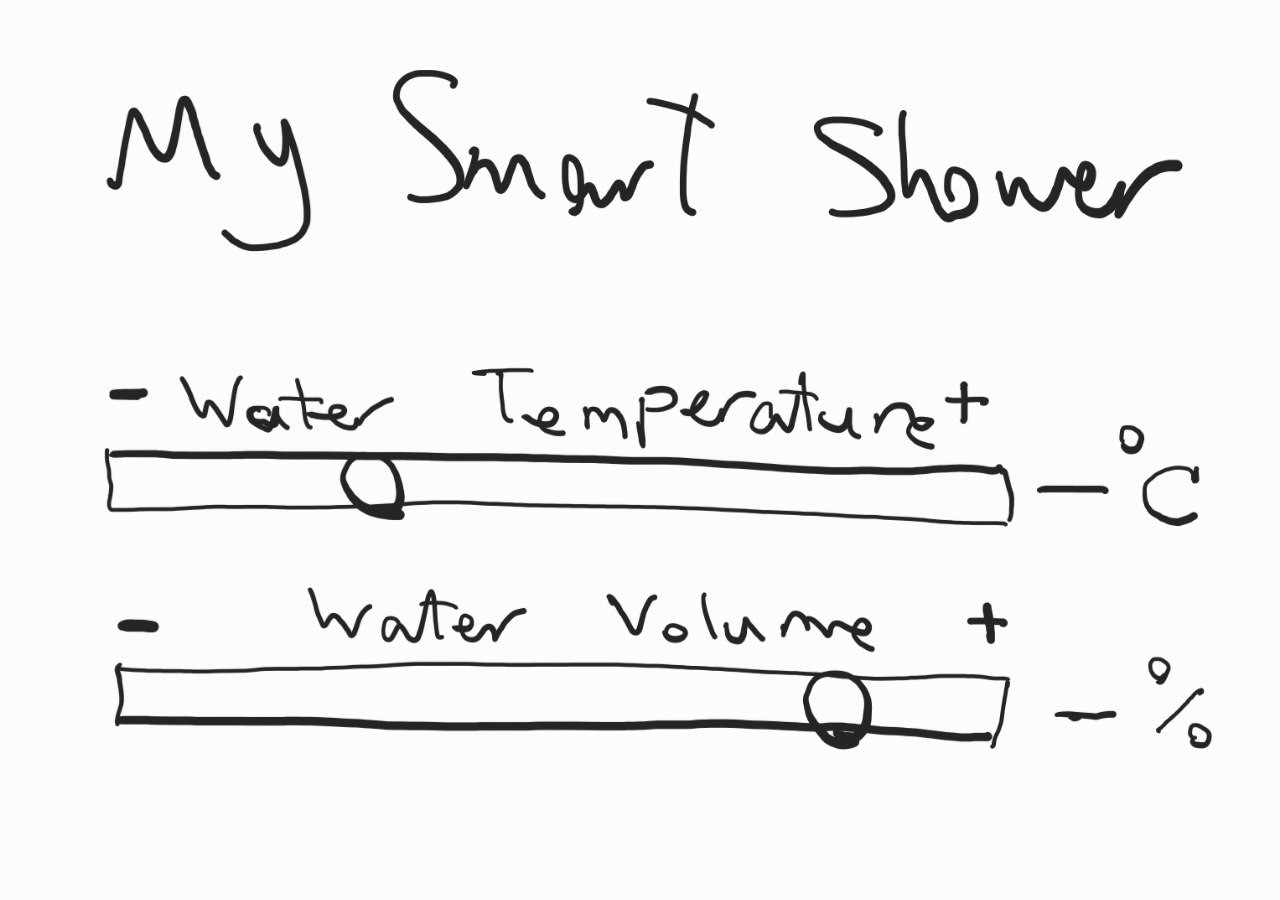 My Smart Shower
- Water Temperature +
- °C
- Water Volume +
- %